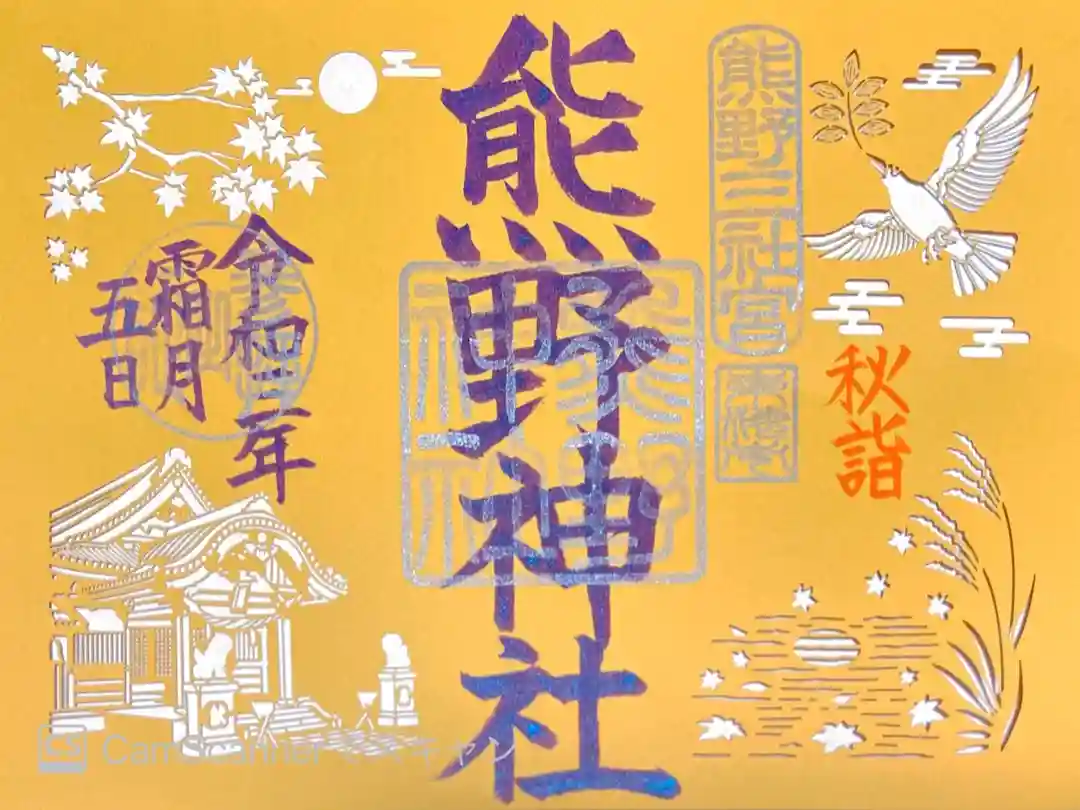 秋詣
熊野三社宮
熊野神社
熊野神社
令和三年
霜月
五日
CS CamScanner でスキャン